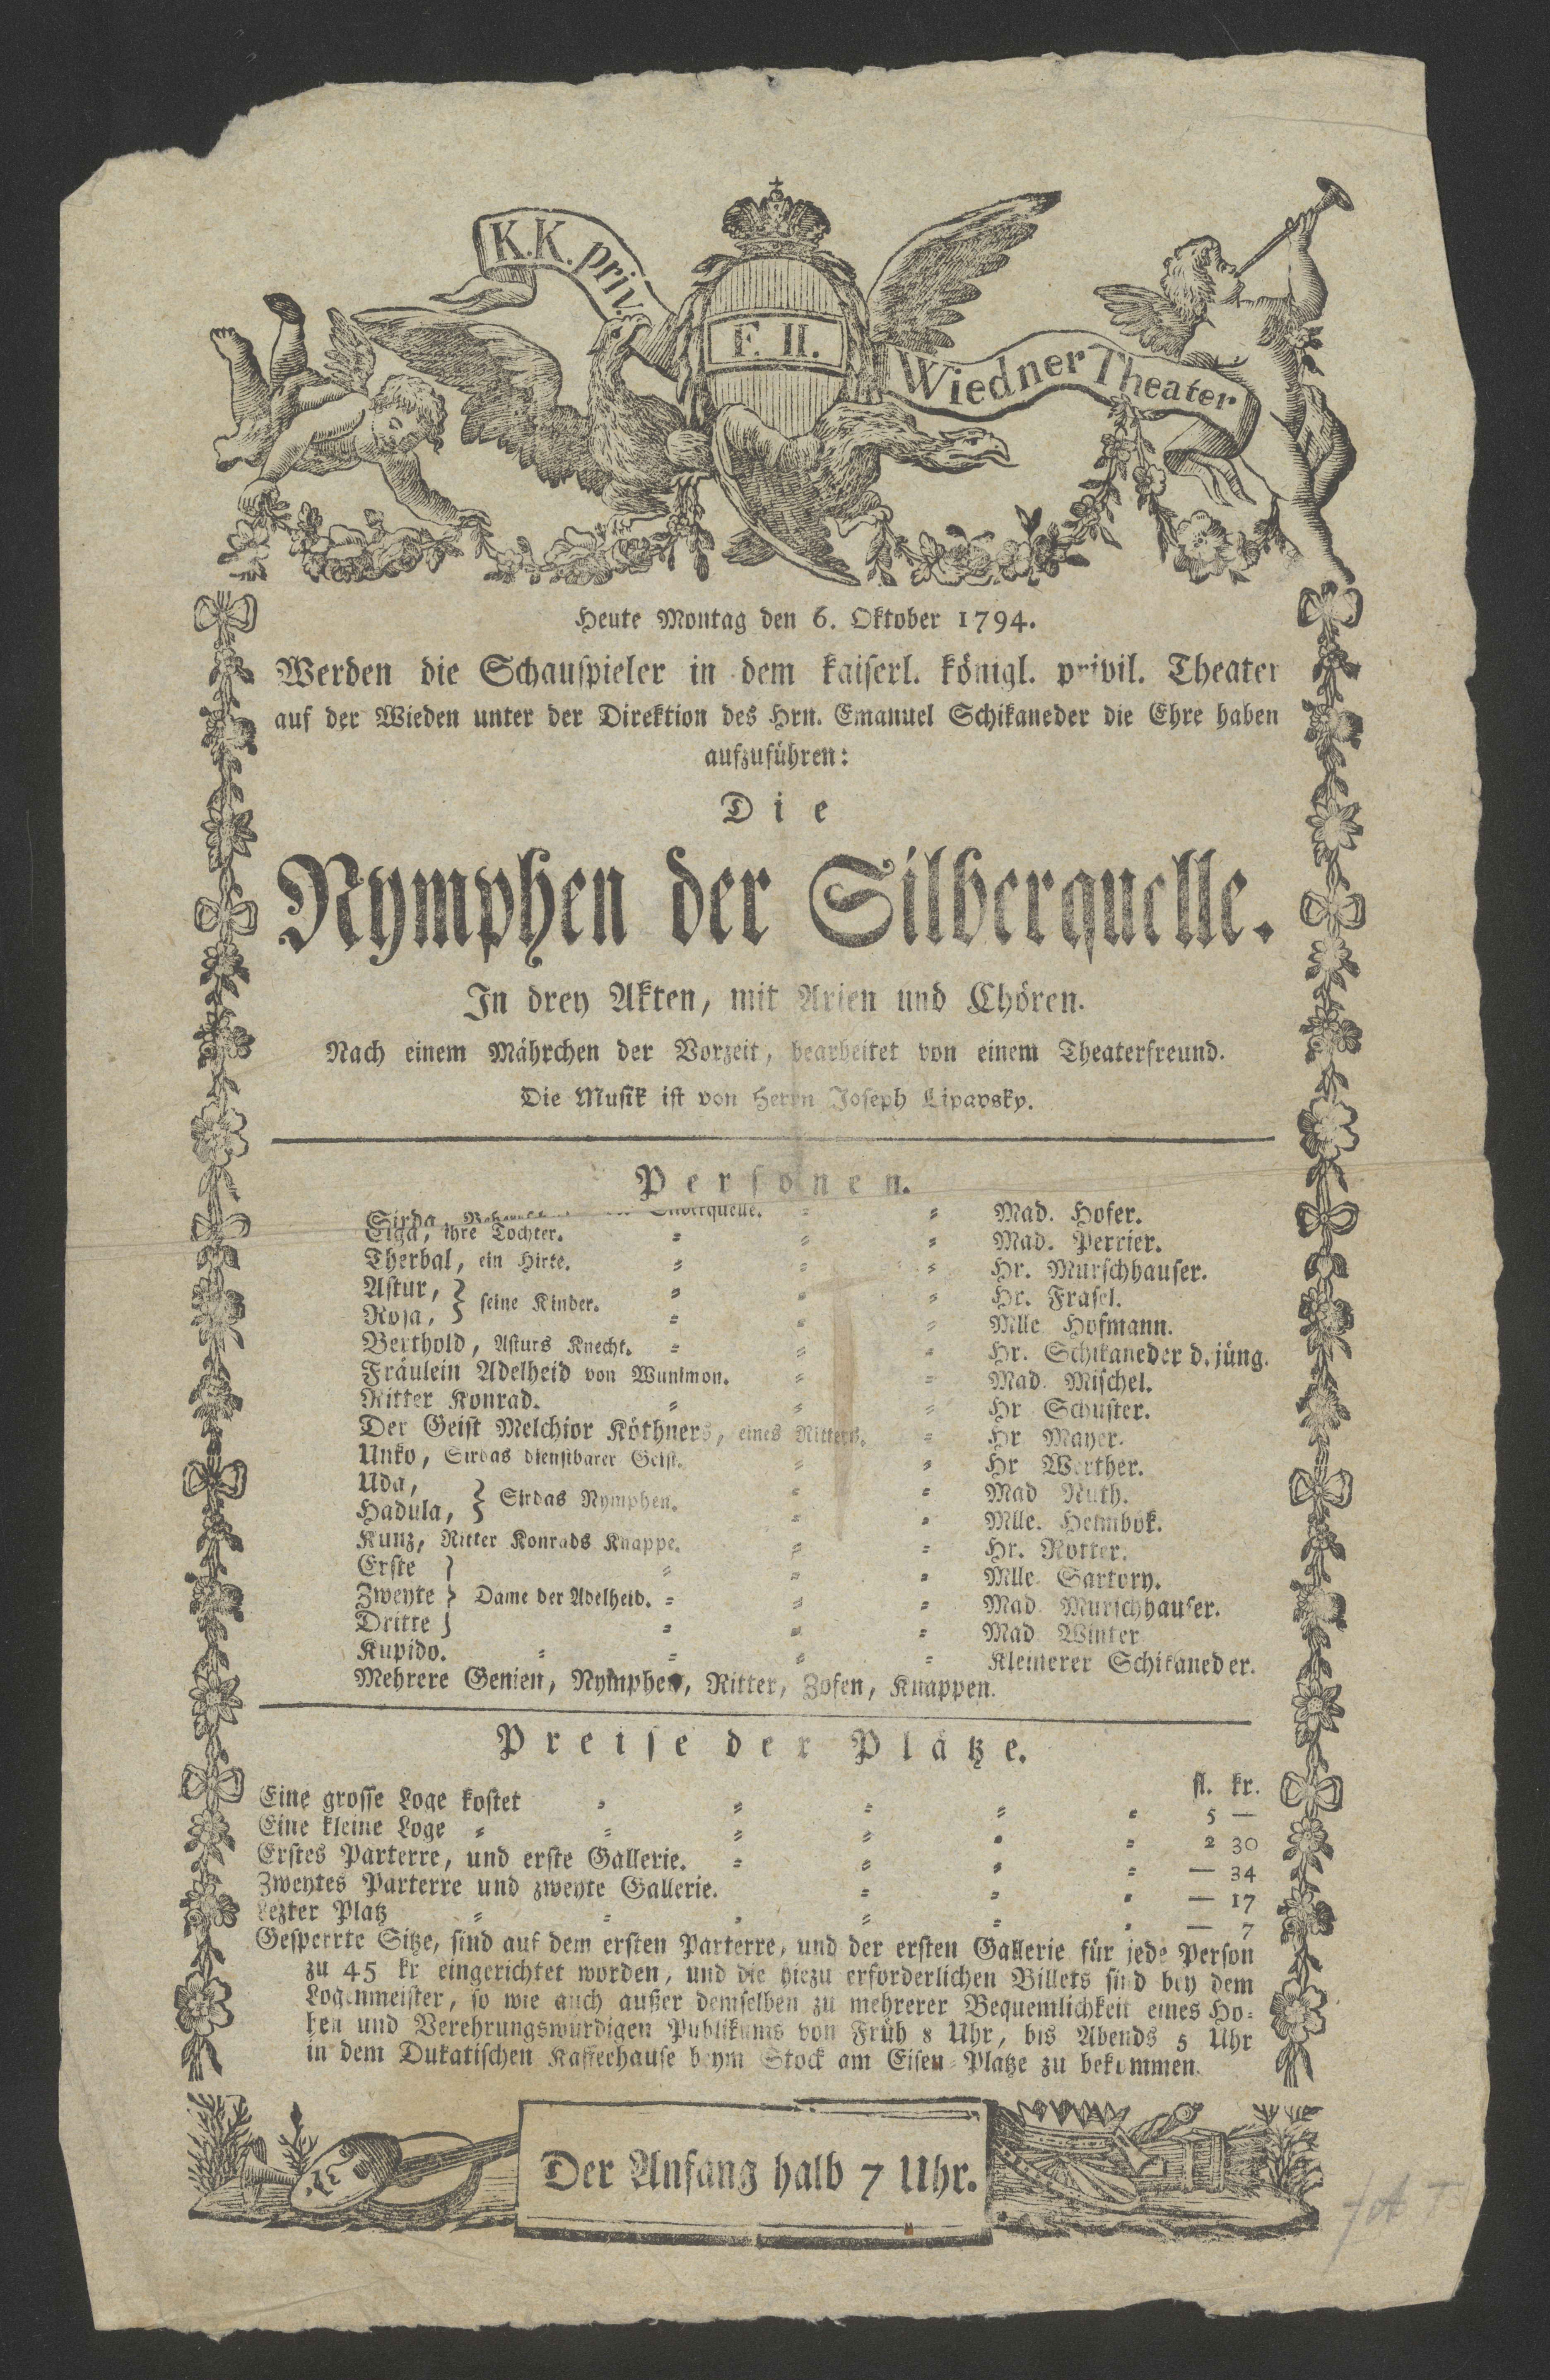 K.K. priv.
F. II.
Wiedner Theater
Heute Montag den 6. Oktober 1794.
Werden die Schauspieler in dem kaiserl. königl. privil. Theater
auf der Wieden unter der Direktion des Hrn. Emanuel Schikaneder die Ehre haben
aufzuführen:
Die
Nymphen der Silberquelle.
In drey Akten, mit Arien und Chören.
Nach einem Mährchen der Vorzeit, bearbeitet von einem Theaterfreund.
Die Musik ist von Herrn Joseph Lipavsky.
Personen.
Sirda, Silberquelle. Mad. Hofer.
Elga, ihre Tochter. Mad. Perrier.
Therbal, ein Hirte. Hr. Murschhauser.
Astur, } seine Kinder. Hr. Frasel.
Rosa, } Mlle Hofmann.
Berthold, Asturs Knecht. Hr. Schikaneder d. jüng.
Fräulein Adelheid von Wunimon. Mad. Mischel.
Ritter Konrad. Hr Schuster.
Der Geist Melchior Köthners, eines Ritters. Hr Mayer.
Unko, Sirdas dienstbarer Geist. Hr Werther.
Uda, } Sirdas Nymphen. Mad Ruth.
Hadula, } Mlle. Heimbök.
Kunz, Ritter Konrads Knappe. Hr. Rotter.
Erste } Mlle. Sartory.
Zweyte } Dame der Adelheid. Mad. Murschhauser.
Dritte } Mad Winter
Kupido. Kleinerer Schikaneder.
Mehrere Genien, Nymphen, Ritter, Zofen, Knappen.
Preise der Plätze.
fl. kr.
Eine grosse Loge kostet 5 —
Eine kleine Loge 2 30
Erstes Parterre, und erste Gallerie. — 34
Zweytes Parterre und zweyte Gallerie. — 17
Lezter Platz — 7
Gesperrte Sitze, sind auf dem ersten Parterre, und der ersten Gallerie für jede Person
zu 45 kr eingerichtet worden, und die hiezu erforderlichen Billets sind bey dem
Logenmeister, so wie auch außer demselben zu mehrerer Bequemlichkeit eines Ho-
hen und Verehrungswürdigen Publikums von Früh 8 Uhr, bis Abends 5 Uhr
in dem Dukatischen Kaffeehause beym Stock am Eisen-Platze zu bekommen.
Der Anfang halb 7 Uhr.